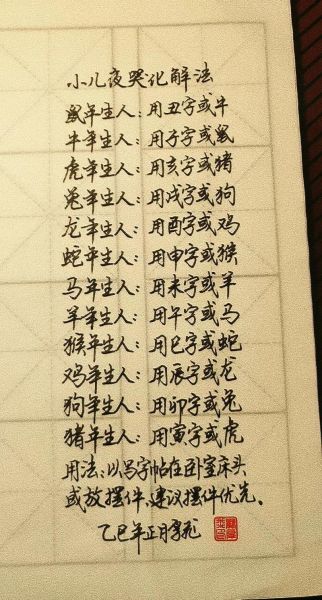 小儿夜哭化解法
鼠年生人：用丑字或牛
牛年生人：用子字或鼠
虎年生人：用亥字或猪
兔年生人：用戌字或狗
龙年生人：用酉字或鸡
蛇年生人：用申字或猴
马年生人：用未字或羊
羊年生人：用午字或马
猴年生人：用巳字或蛇
鸡年生人：用辰字或龙
狗年生人：用卯字或兔
猪年生人：用寅字或虎
用法：以写字帖在卧室床头
或放摆件，建议摆件优先。
乙巳年正月